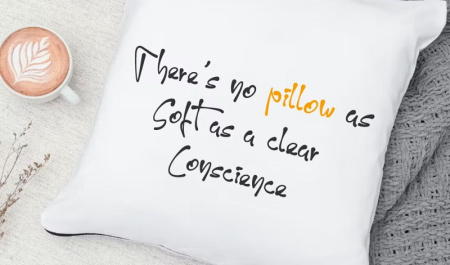 There's no pillow as
Soft as a clear
Conscience